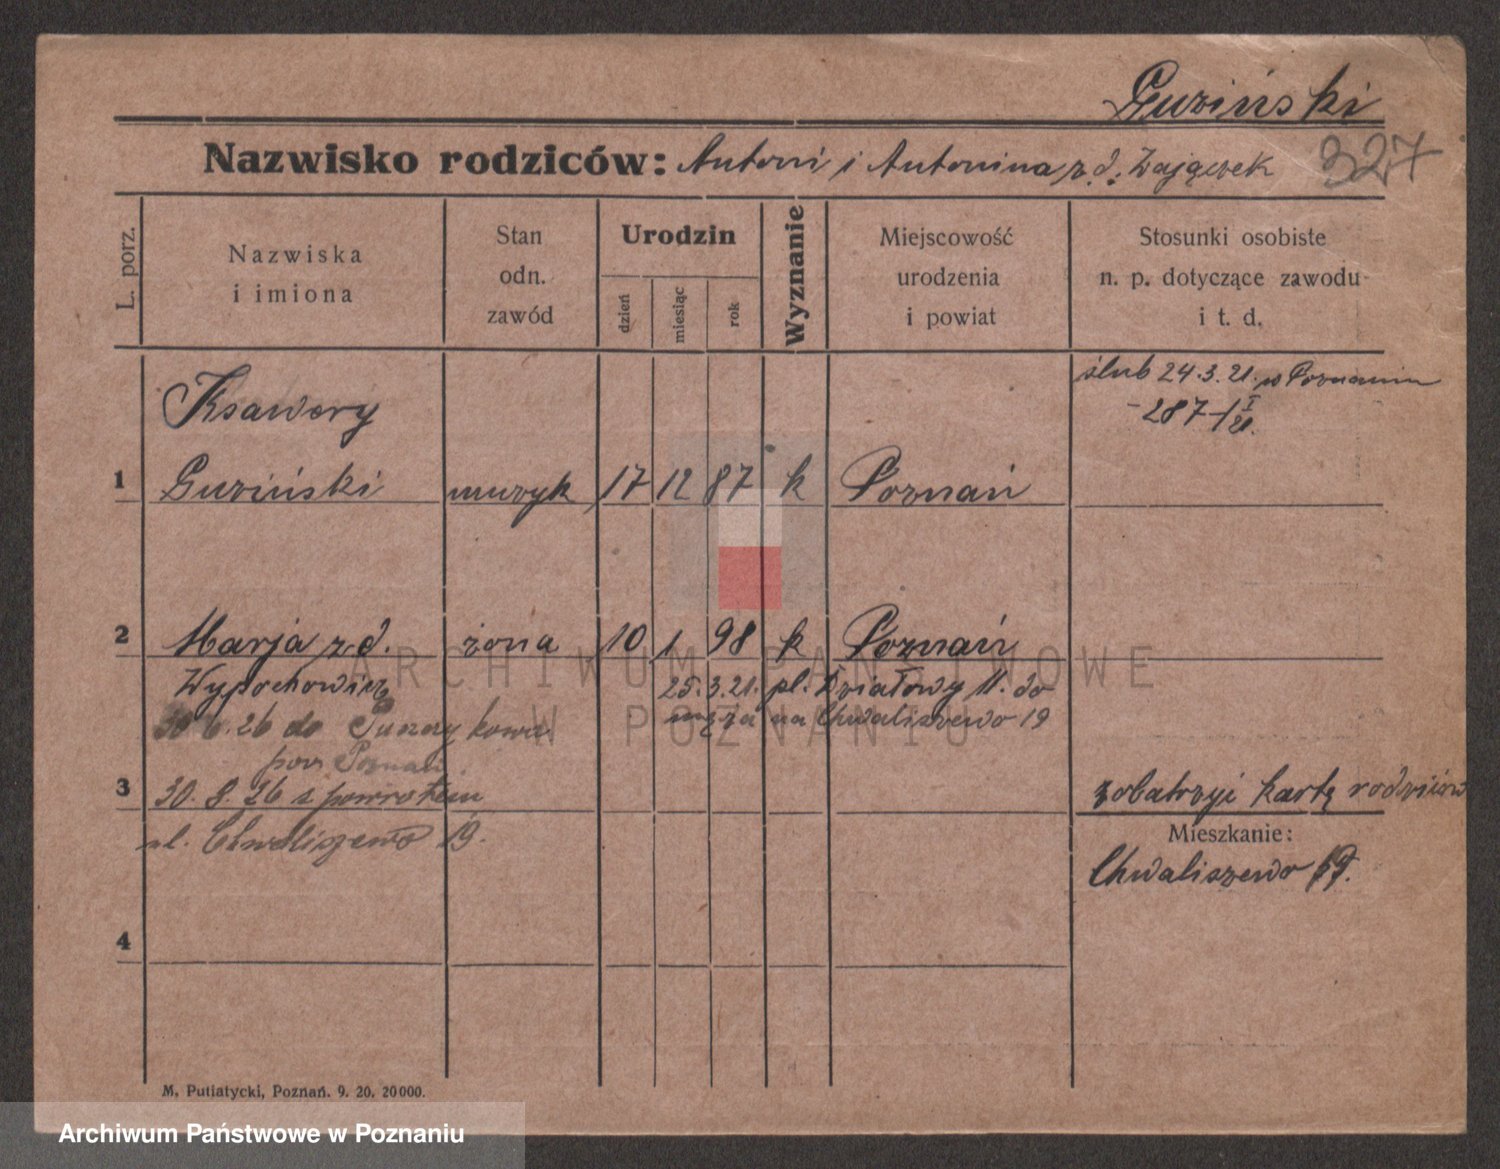 Guziński
Nazwisko rodziców: Antoni i Antonina z d. Zajączek 327
L. porz.
Nazwiska
i imiona
Stan
odn.
zawód
Urodzin
dzień
miesiąc
rok
Wyznanie
Miejscowość
urodzenia
i powiat
Stosunki osobiste
n. p. dotyczące zawodu
i t. d.
ślub 24.3.21. w Poznaniu
-287-/I 21.
Ksawery
1 Guziński muzyk 17 12 87 k Poznań
2 Marja z d. żona 10 1 98 k Poznań
Wypochowicz 25.3.21. pl. Działowy 11. do
męża na Chwaliszewo 19
30 6.26 do Puszczykowa
pow Poznań
3 30. 8. 26 z powrotem
ul. Chwaliszewo 19.
zobatrzyi kartę rodziców
Mieszkanie:
Chwaliszewo 19.
4
M. Putiatycki, Poznań. 9. 20. 20000.
ARCHIWUM PAŃSTWOWE
W POZNANIU
Archiwum Państwowe w Poznaniu